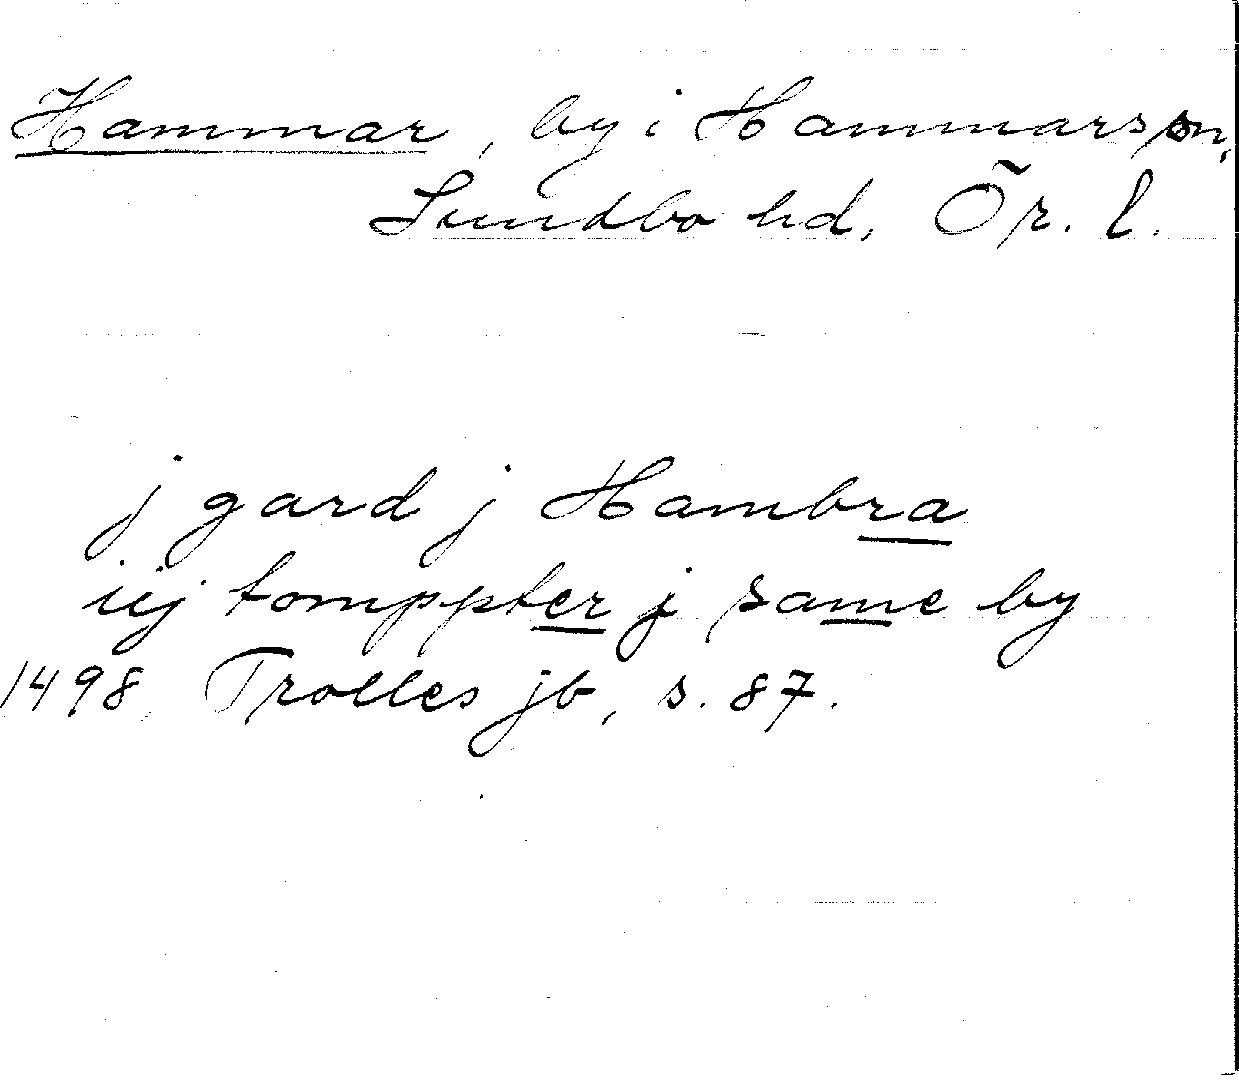 Hammar, by i Hammars sn,
Sundbo hd, Ör. l.
j gard j Hambra
iij tomppter j same by
1498, Trolles jb, s. 87.